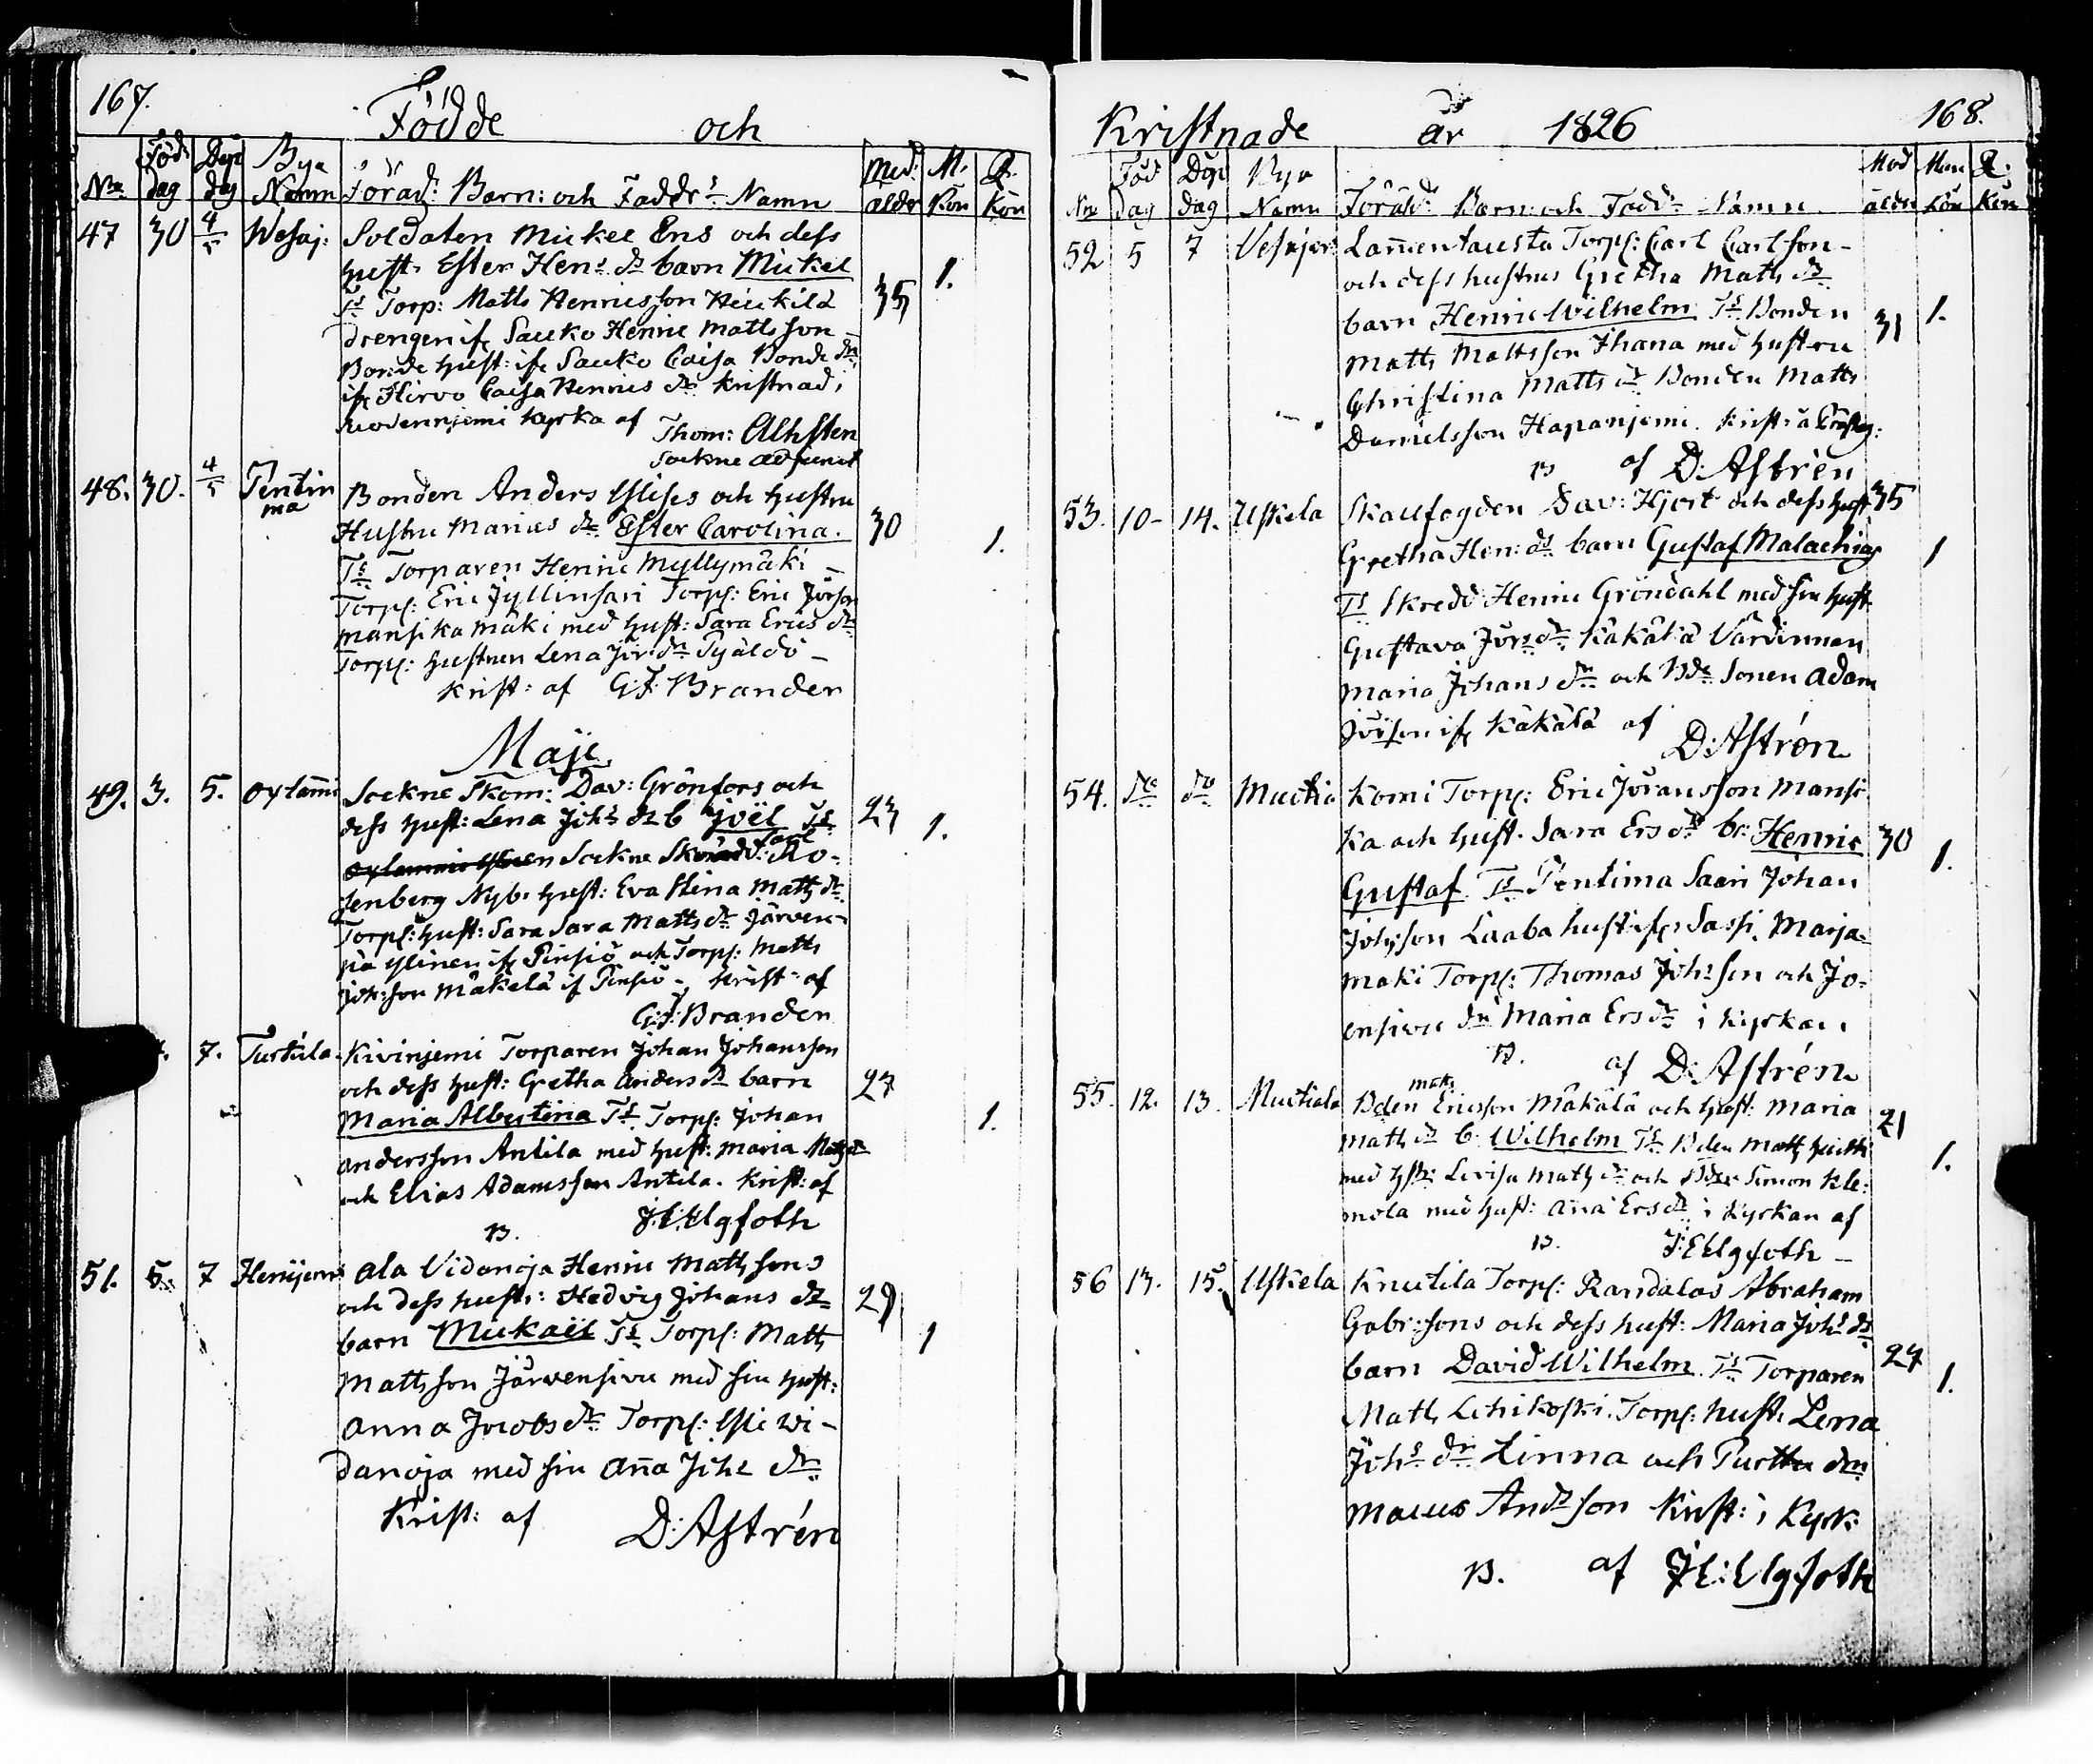 167.
Födde och
No. Föd: dag Döp dag Bya Namn Föräd: Barn: och Fadd:rs Namn Mod: ålder M. Kön Q. Kön
47 30 4/5 Wesaj: Soldaten Mickel Ers och dess
hust: Ester Hen:s dr barn Mickel 35 1.
Ts Torp: Matts Henricsson Heickilä
drengen if: Sauko Henric Mattsson
Bonde hust: if: Sauko Caisa Bonde dr
if: Hirvo Caisa Henrics dr kristnad i
Ruovenniemi kyrka af Thom: Ahlsten
Sockne adjunct
48. 30. 4/5 Pentin
ma Bonden Anders Ulises och hustru
Hustru Marias dr Ester Carolina. 30 1.
Ts Torparen Henric Myllymäki
Torp: Eric Jyllinsari Torp: Eric Jörson
mansika mäki med hust: Sara Erics dr
Torp: hustrun Lena Jör:dr Pjäldö
Krist: af G:F: Brander
Maji
49. 3. 5. Oxlami Sockne Skom: Dav: Grönfors och
dess hust: Lena Joh:s dr b Joël Ts 23 1.
Sockne Skrädd: Carl Ro-
senberg Nyb: hust: Eva Stina Matts dr
Torp: hust: Sara Sara Matts dr Järven-
pä Ylinen if: Pinsiö och Torp: Matts
Joh:son Mäkelä if Pinsiö Krist: af
G:F: Brander
7. Turkila Kivirjemi Torparen Johan Johansson
och dess hust: Gretha Anders dr barn 27
Maria Albertina Ts Torp: Johan 1.
Andersson Antila med hust: Maria Matts dr
och Elias Adamsson Antila. Krist: af
B. J:E:Elgfoth
51. 5. 7 Henijemi Ala Vidanoja Henric Mattssons
och dess hust: Hedvig Johans dr 29
barn Mickaël Ts Torp: Matts 1
Mattsson Järvensivu med sin hust:
Anna Jacobs dr Torp: Ylie Wi-
danoja med sin Aña Joh:s dr
Krist: af D: Astrén
Kristnade år 1826 168.
No. Föd dag Döp dag Bya Namn Föräd: Barn: och Fadd: Namn Mod ålder Man Kön Q. Kön
52 5 7 Vesajer: Lañentausta Torp: Carl Carlson
och dess hustrus Gretha Matts dr
barn Henric Wilhelm Ts Bonden 31 1.
Matts Mattsson Ihana med hustru
Christina Matts dr Bonden Matts
Danielsson Hapanjemi. Krist: å Prästg:
B af D: Astrén
53. 10 14. Uskela Skallfogden Dav: Hjort och dess hust 35
Gretha Hen: dr barn Gustaf Malachias 1
Ts Skredd Henric Gröndahl med sin hust
Gustava Jörs dr Käkälä Värdinnan
Maria Johans dr och Bde Sonen Adam
Jörson if: Käkälä af D: Astrén
54. do do Muctia Komi Torp: Eric Jöransson Mansi-
ka och hust. Sara Ers dr br: Henric 30 1.
Gustaf Ts Pentima Saari Johan
Johsson Laaba hust if: Sassi, Marja-
mäki Torp: Thomas Joh:son och Jo-
ensivu dn Maria Ers dr i Kyrkan
B. af D: Astrén
55. 12. 13. Muctiala Bden Mats Ericsson Mäkälä och hust: Maria 21
Matts dr b. Wilhelm Ts Bden Matts Huitti
med hst: Lovisa Matts dr och Bden Simon Kle- 1.
mola med hust: Aña Ers dr i Kyrkan af
B. J:E:Elgfoth
56 13. 15. Uskela Knutila Torp: Randalas Abraham
Gabr:sons och dess hust: Maria Joh:s dr
barn David Wilhelm. Ts Torparen 24 1.
Matts Lehikoski. Torp: hust: Lena
Joh:s dr Linna och Purttu drn
Marcus And:son Krist: i Kyrk:
B. af J:E:Elgfoth